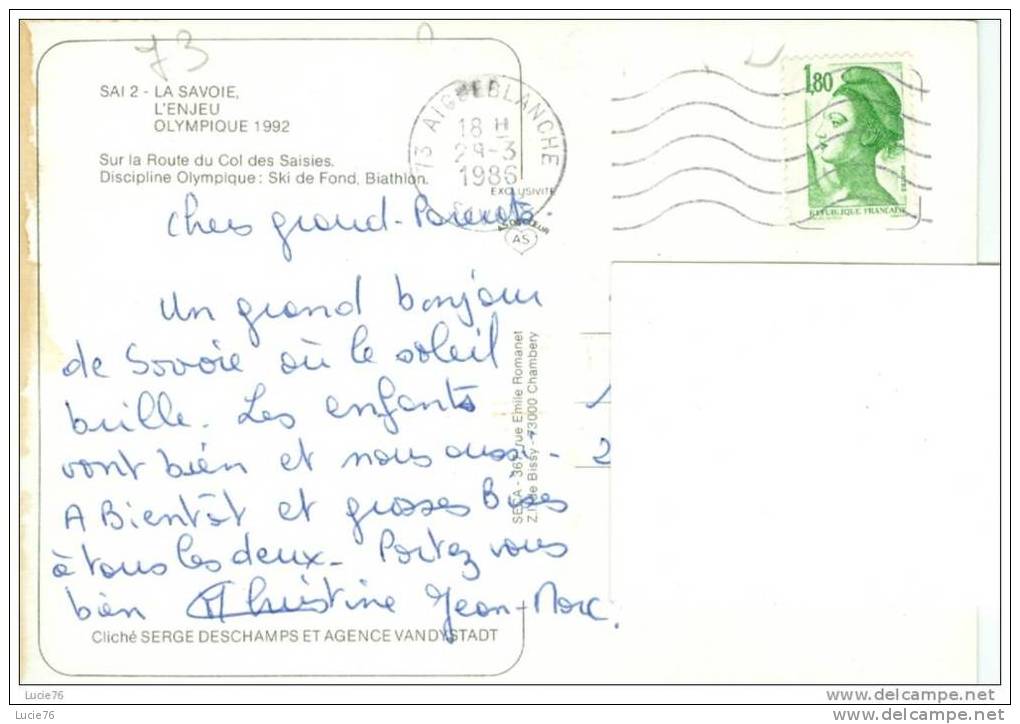 73
SAI 2 - LA SAVOIE,
L'ENJEU
OLYMPIQUE 1992
Sur la Route du Col des Saisies.
Discipline Olympique : Ski de Fond, Biathlon.
73 AIGUEBLANCHE
18 H
29-3
1986
EXCLUSIVITE
AS
1,80
REPUBLIQUE FRANCAISE
Chers grand-Parents.
Un grand bonjour
de Savoie où le soleil
brille. Les enfants
vont bien et nous aussi-
A Bientôt et grosses Bises
à tous les deux. Portez vous
bien Christine Jean-Marc.
Rue Emile Romanet
Z.I. de Bissy - 73000 Chambery
Cliché SERGE DESCHAMPS ET AGENCE VANDYSTADT
Lucie76
Lucie76
www.delcampe.net
www.delcampe.net